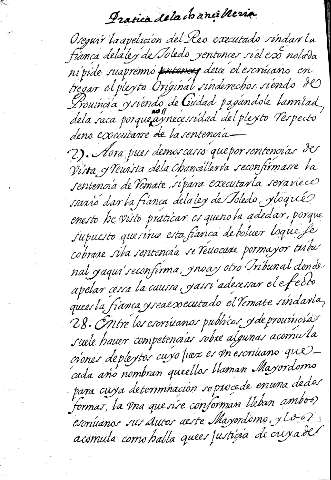 Pratica de la chancilleria
O seguir la apelicion del Reo executado sin dar la
fianca de la ley de Toledo, y entonces si el ex.º no la da
ni pide su apremo deve el escrivano en
tregar el pleyto Original sin derechos siendo de
Provincia y siendo de Ciudad pagandole la mitad
de la saca porque no ay necesidad del pleyto Respecto
de no executarse de la sentencia
27. Aora pues demos caso que por sentencias de
Vista, y Revista de la Chancilleria se confirmase la
sentencia de Remate, si para executarla sera nece
sario dar la fianca de la ley de Toledo, y lo que
en esto he visto praticar es que no la a de dar, porque
supuesto que sirve esta fianca de bolver lo que se
cobrare si la sentencia se Revocare por mayor tribu
nal y aqui se confirma, y no ay otro Tribunal donde
apelar cessa la caussa, y assi a de cesar el efecto
que es la fianca y se a executado el Remate sin darla
28. Entre los escrivanos publicos, y de provincia
suele haver competencias sobre algunas acomula
ciones de pleytos cuyo juez es un escrivano que
cada año nombran que ellos llaman Mayordomo
para cuya determinacion se procede en una de dos
formas, la una que si se conforman lleban ambos
escrivanos sus Autos a este Mayordomo, y los
acomula como halla que es justicia